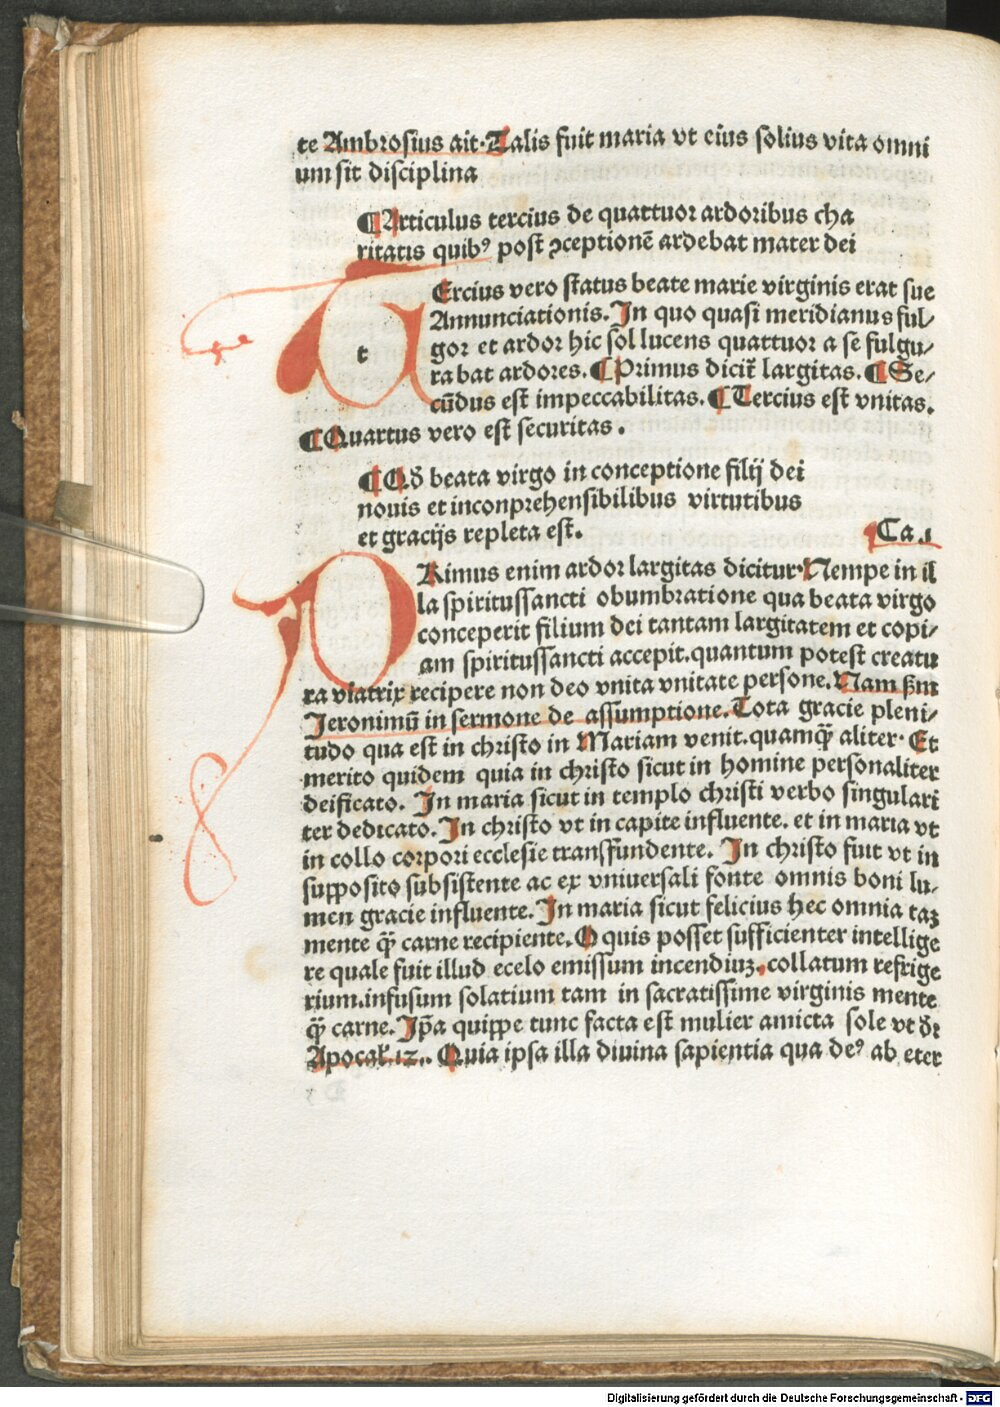 te Ambrosius ait. Talis fuit maria vt eius solius vita omni
um sit disciplina
¶Articulus tercius de quattuor ardoribus cha
ritatis quibꝰ post ꝯceptionē ardebat mater dei
t
Ercius vero status beate marie virginis erat sue
Annunciationis. In quo quasi meridianus ful/
gor et ardor hic sol lucens quattuor a se fulgu/
ra bat ardores. ¶Primus dicit̄ largitas. ¶Se/
cūdus est impeccabilitas. ¶Tercius est vnitas.
¶Quartus vero est securitas.
¶Qd̄ beata virgo in conceptione filij dei
nouis et inconprehensibilibus virtutibus
et gracijs repleta est.
Ca. ı
PRimus enim ardor largitas dicitur. Nempe in il
la spiritussancti obumbratione qua beata virgo
conceperit filium dei tantam largitatem et copi/
am spiritussancti accepit. quantum potest creatu
ra viatrix recipere non deo vnita vnitate persone. Nam s̄m
Jeronimū in sermone de assumptione. Tota gracie pleni/
tudo qua est in christo in Mariam venit. quamqꝫ̄ aliter. Et
merito quidem quia in christo sicut in homine personaliter
deificato. In maria sicut in templo christi verbo singulari
ter dedicato. In christo vt in capite influente. et in maria vt
in collo corpori ecclesie transfundente. In christo fuit vt in
supposito subsistente ac ex vniuersali fonte omnis boni lu/
men gracie influente. In maria sicut felicius hec omnia taꝫ
mente qꝫ̄ carne recipiente. O quis posset sufficienter intellige
re quale fuit illud ecelo emissum incendiuꝫ. collatum refrige
rium. infusum solatium tam in sacratissime virginis mente
qꝫ̄ carne. Ip̄a quippe tunc facta est mulier amicta sole vt dr̄
Apocal. 12. Quia ipsa illa diuina sapientia qua deꝰ ab eter
Digitalisierung gefördert durch die Deutsche Forschungsgemeinschaft - DFG